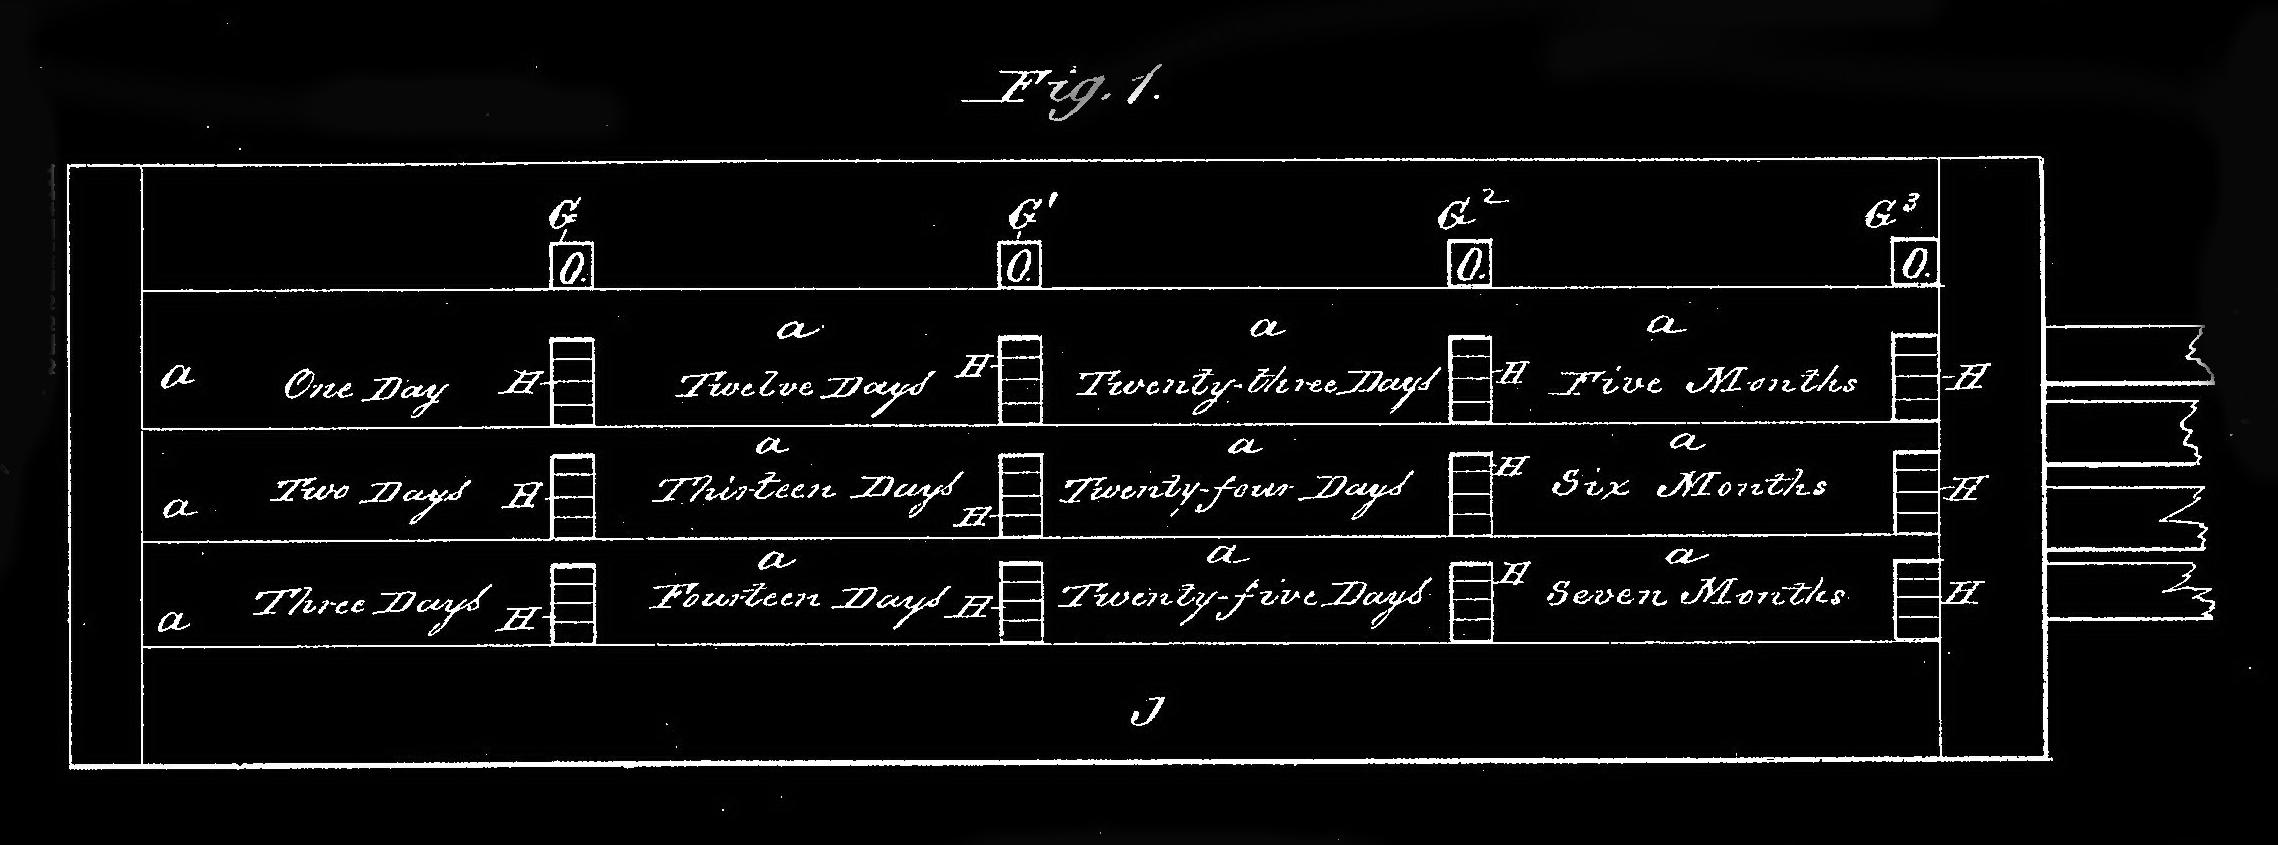 Fig. 1.
G G' G² G³
O. O. O. O.
a a a
a One Day H Twelve Days H Twenty-three Days H Five Months H
a a a
a Two Days H Thirteen Days H Twenty-four Days H Six Months H
a a a
a Three Days H Fourteen Days H Twenty-five Days H Seven Months H
J